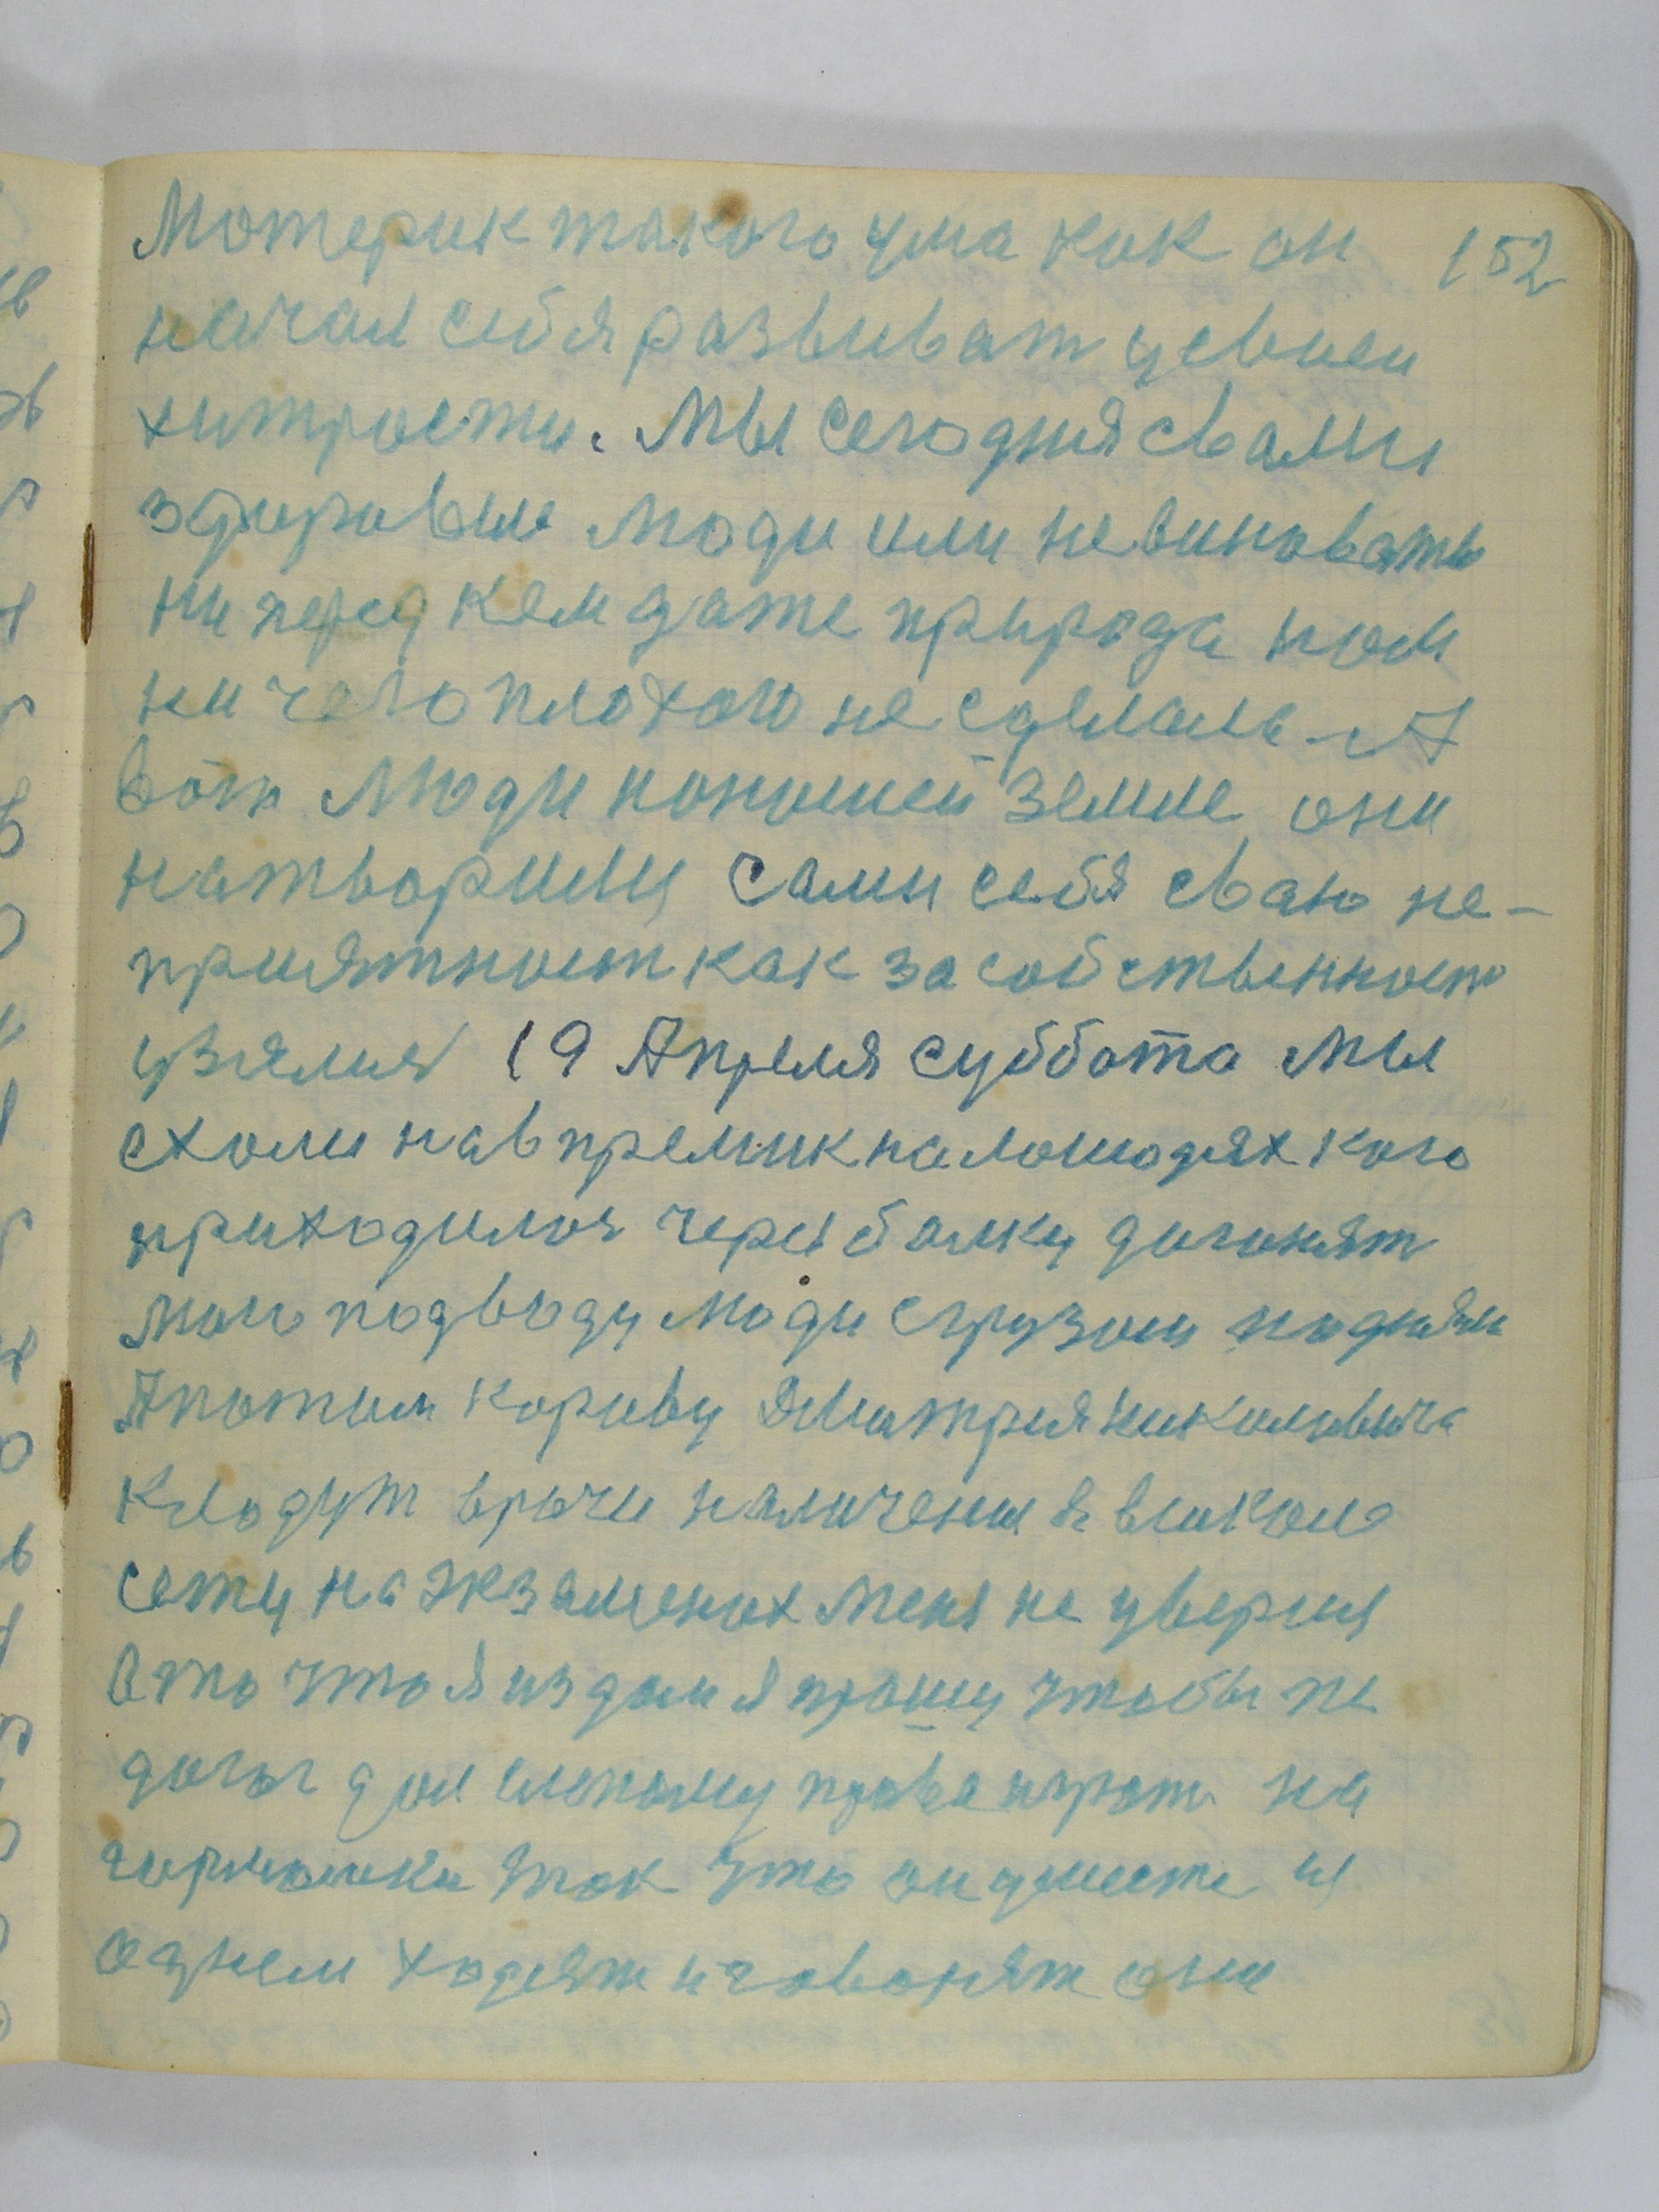 Мотерик такого ума как он 152
начал себя развиват усвоеи
хитрости. Мы сегодня свами
здоровые люди или невиноваты
ни перед кем даже природа нам
ни чего плохого не сделала А
вот люди нонашей земле они
натворили сами себя сваю не-
приятност как за собственност
узялися 19 Апреля суббота мы
ехоли навпремик налошодях кого
приходилося через балку догонят
мою подводу люди сгрузом подняли
Апотом корову Дмитрия николавича
кладут врачи наличения
сету на экзаменах меня не уверил
Ато что я издам я прошу чтобы не
дом слепому права играт на
гармошки так что он уместе и
однем ходят и говонят они